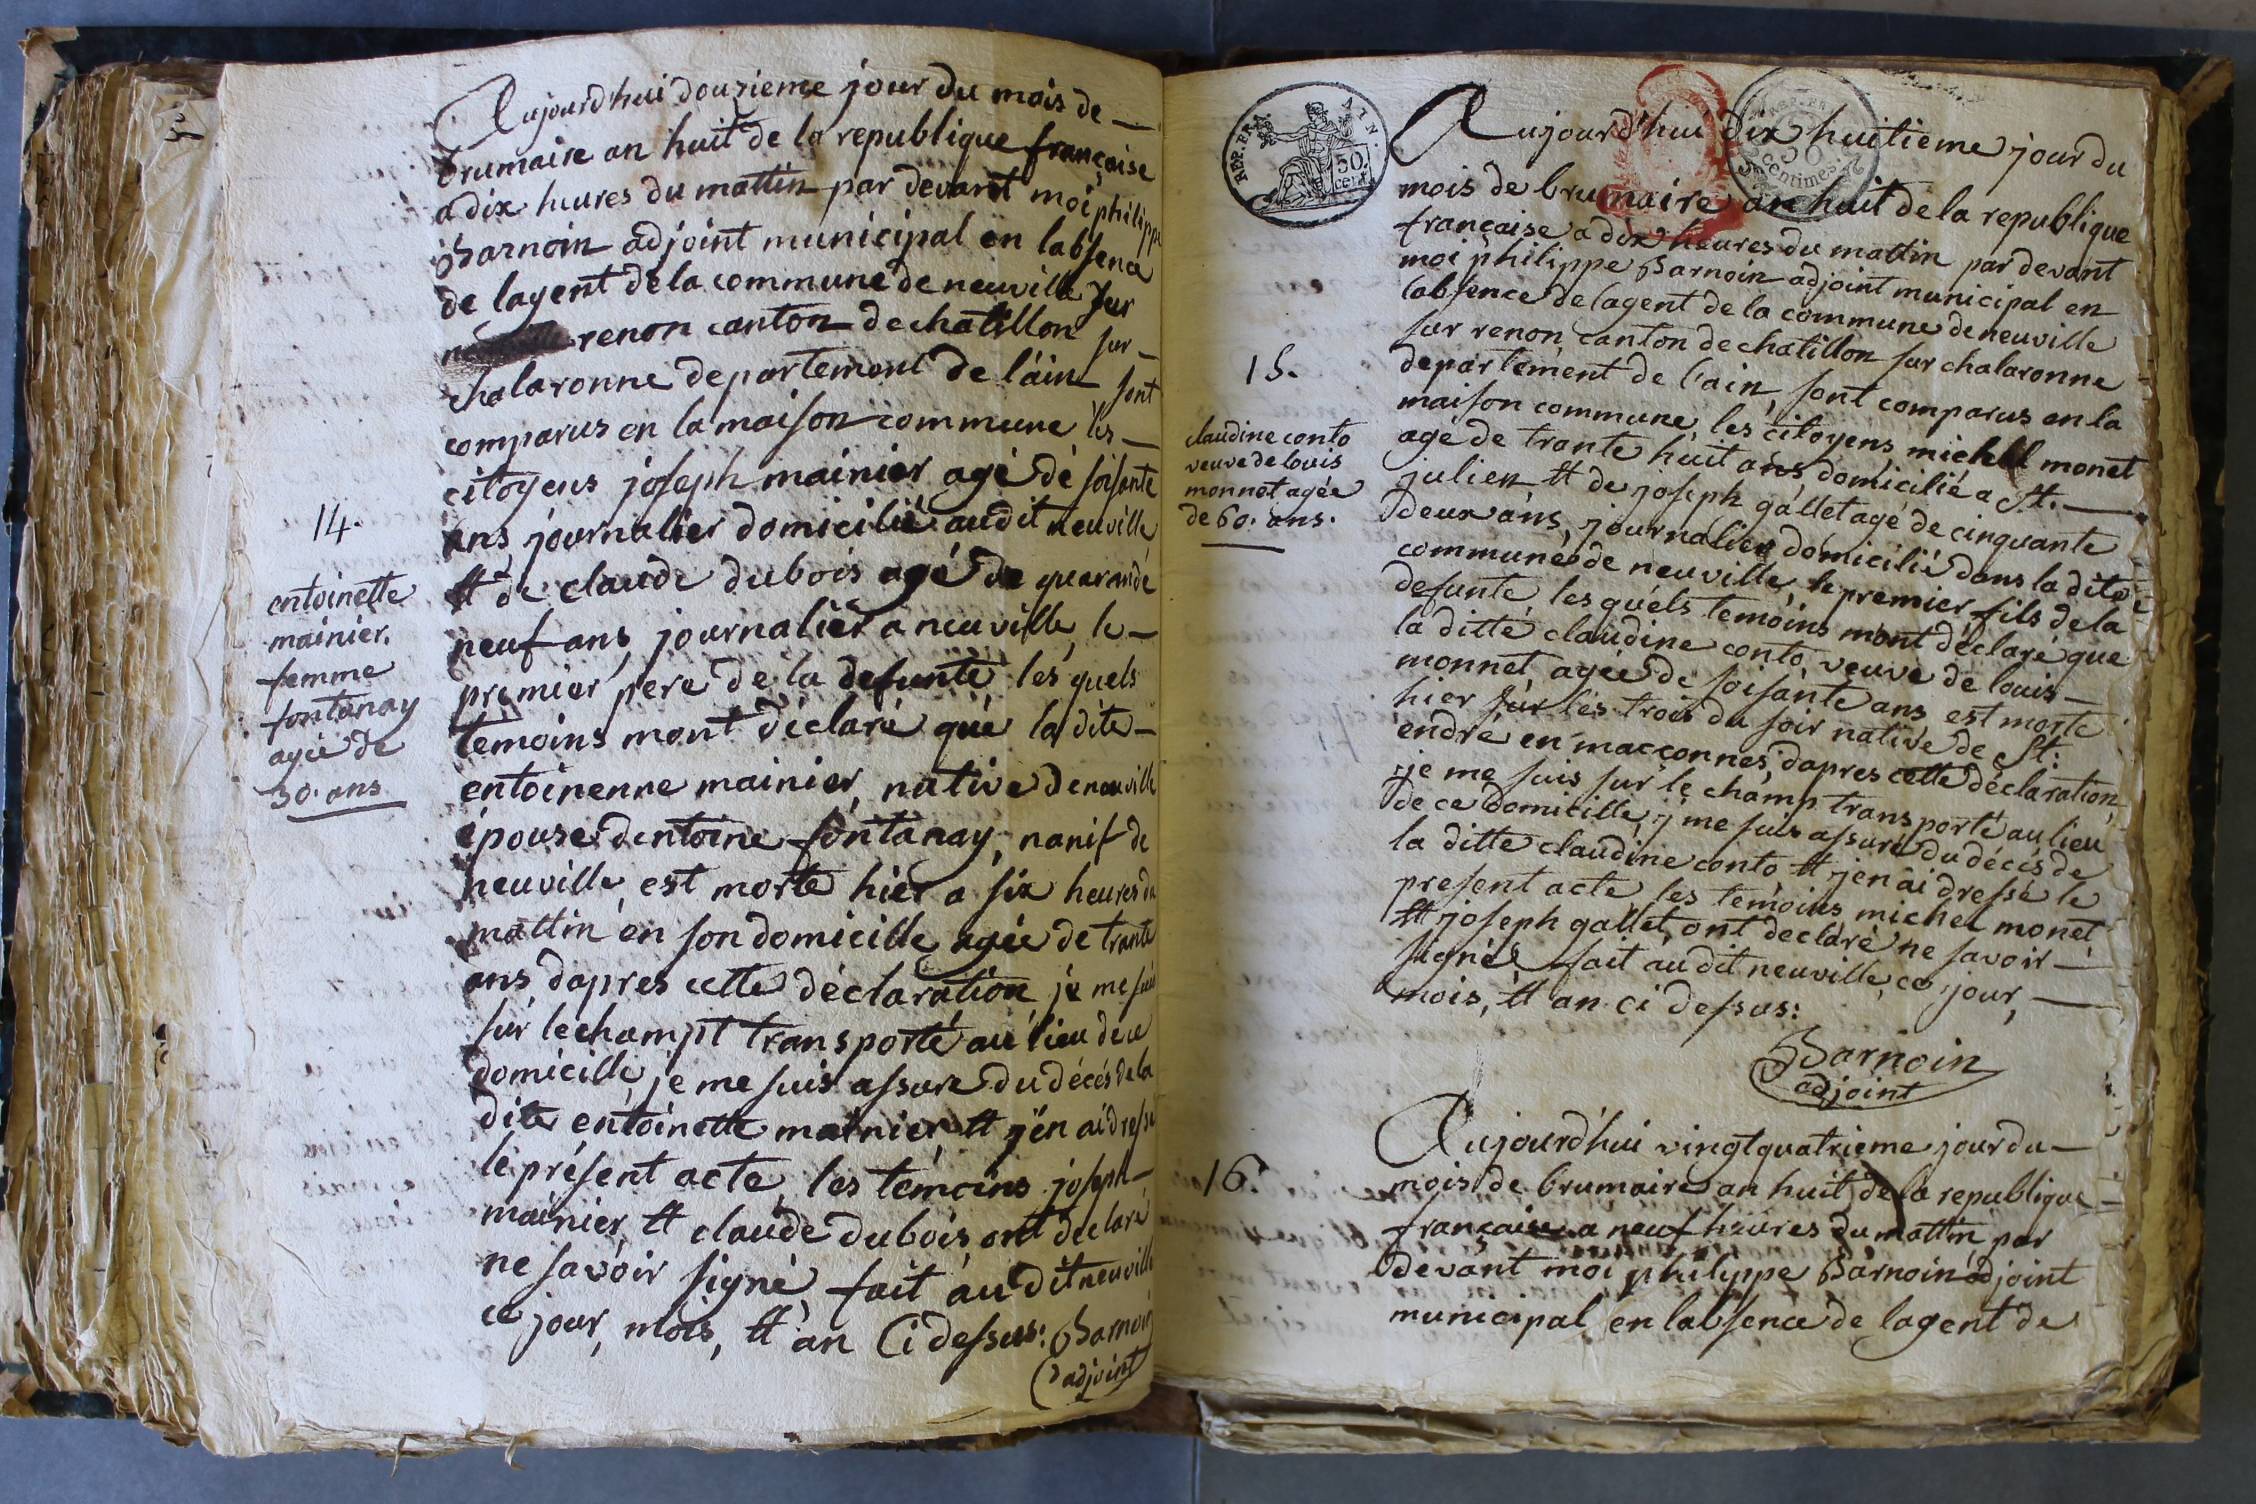 Aujourd'hui douzieme jour du mois de —
brumaire an huit de la republique française
a dix heures du mattin par devant moi philippe
Barnoin adjoint municipal en labsence
de lagent de la commune de neuville sur
renon canton de chatillon sur —
chalaronne departement de l'ain sont
comparus en la maison commune les —
citoyens joseph mainier agé de soisante
ans journalier domicilié audit neuville
et de claude dubois agé de quarande
neuf ans, journalier a neuville, le —
premier pere de la defunte les quels
temoins mont déclaré que la dite —
entoinenne mainier native de neuville
épouse dentoine fontanay, nanif de
neuville, est morte hier a six heures du
mattin en son domicille, agée de trante
ans dapres cette déclaration je me suis
sur le champt transporté au lieu de ce
domicille, je me suis assure du décés de la
dite entoinette mainier et j'en ai dressé
le présent acte, les témoins joseph —
mainier, et claude dubois, ont declaré
ne savoir signé fait au dit neuville
ce jour, mois, et an Ci dessus: Barnoin
adjoint
14.
entoinette
mainier.
femme
fontanay
agée de
30. ans
REP. FRA. AIN.
50.
cent.
REP. FR
50
centimes
Aujourd'hui dix huitieme jour du
mois de brumaire an huit de la republique
française a dix heures du mattin par devant
moi philippe Barnoin adjoint municipal en
labsence de lagent de la commune de neuville
sur renon canton de chatillon sur chalaronne
departement de l'ain, sont comparus en la
maison commune, les citoyens michel monet
agé de trante huit ans domicilié a St. —
julien et de joseph gallet agé de cinquante
deux ans, journalier domicilié dans la dite
commune de neuville, le premier fils de la
defunte, les quels temoins mont déclaré que
la ditte claudine conto, veuve de louis —
monnet, agée de soisante ans est morte
hier sur les trois du soir native de St.
endré en macconnes, dapres cette déclaration
je me suis sur le champ transporté au lieu
de ce domicille, j me suis assuré du décés de
la ditte claudine conto et j'en ai dressé le
present acte, les temoins michel monet
et joseph gallet, ont declaré ne savoir —
signé fait au dit neuville, ce jour, —
mois, et an ci dessus:
Barnoin
adjoint
15.
claudine conto
veuve de louis
monnet agée
de 60. ans.
16.
Aujourd'hui vingt quatrieme jour du —
mois de brumaire an huit de la republique
française a neuf heures du mattin par
devant moi philippe Barnoin adjoint
municipal en labsence de lagent de